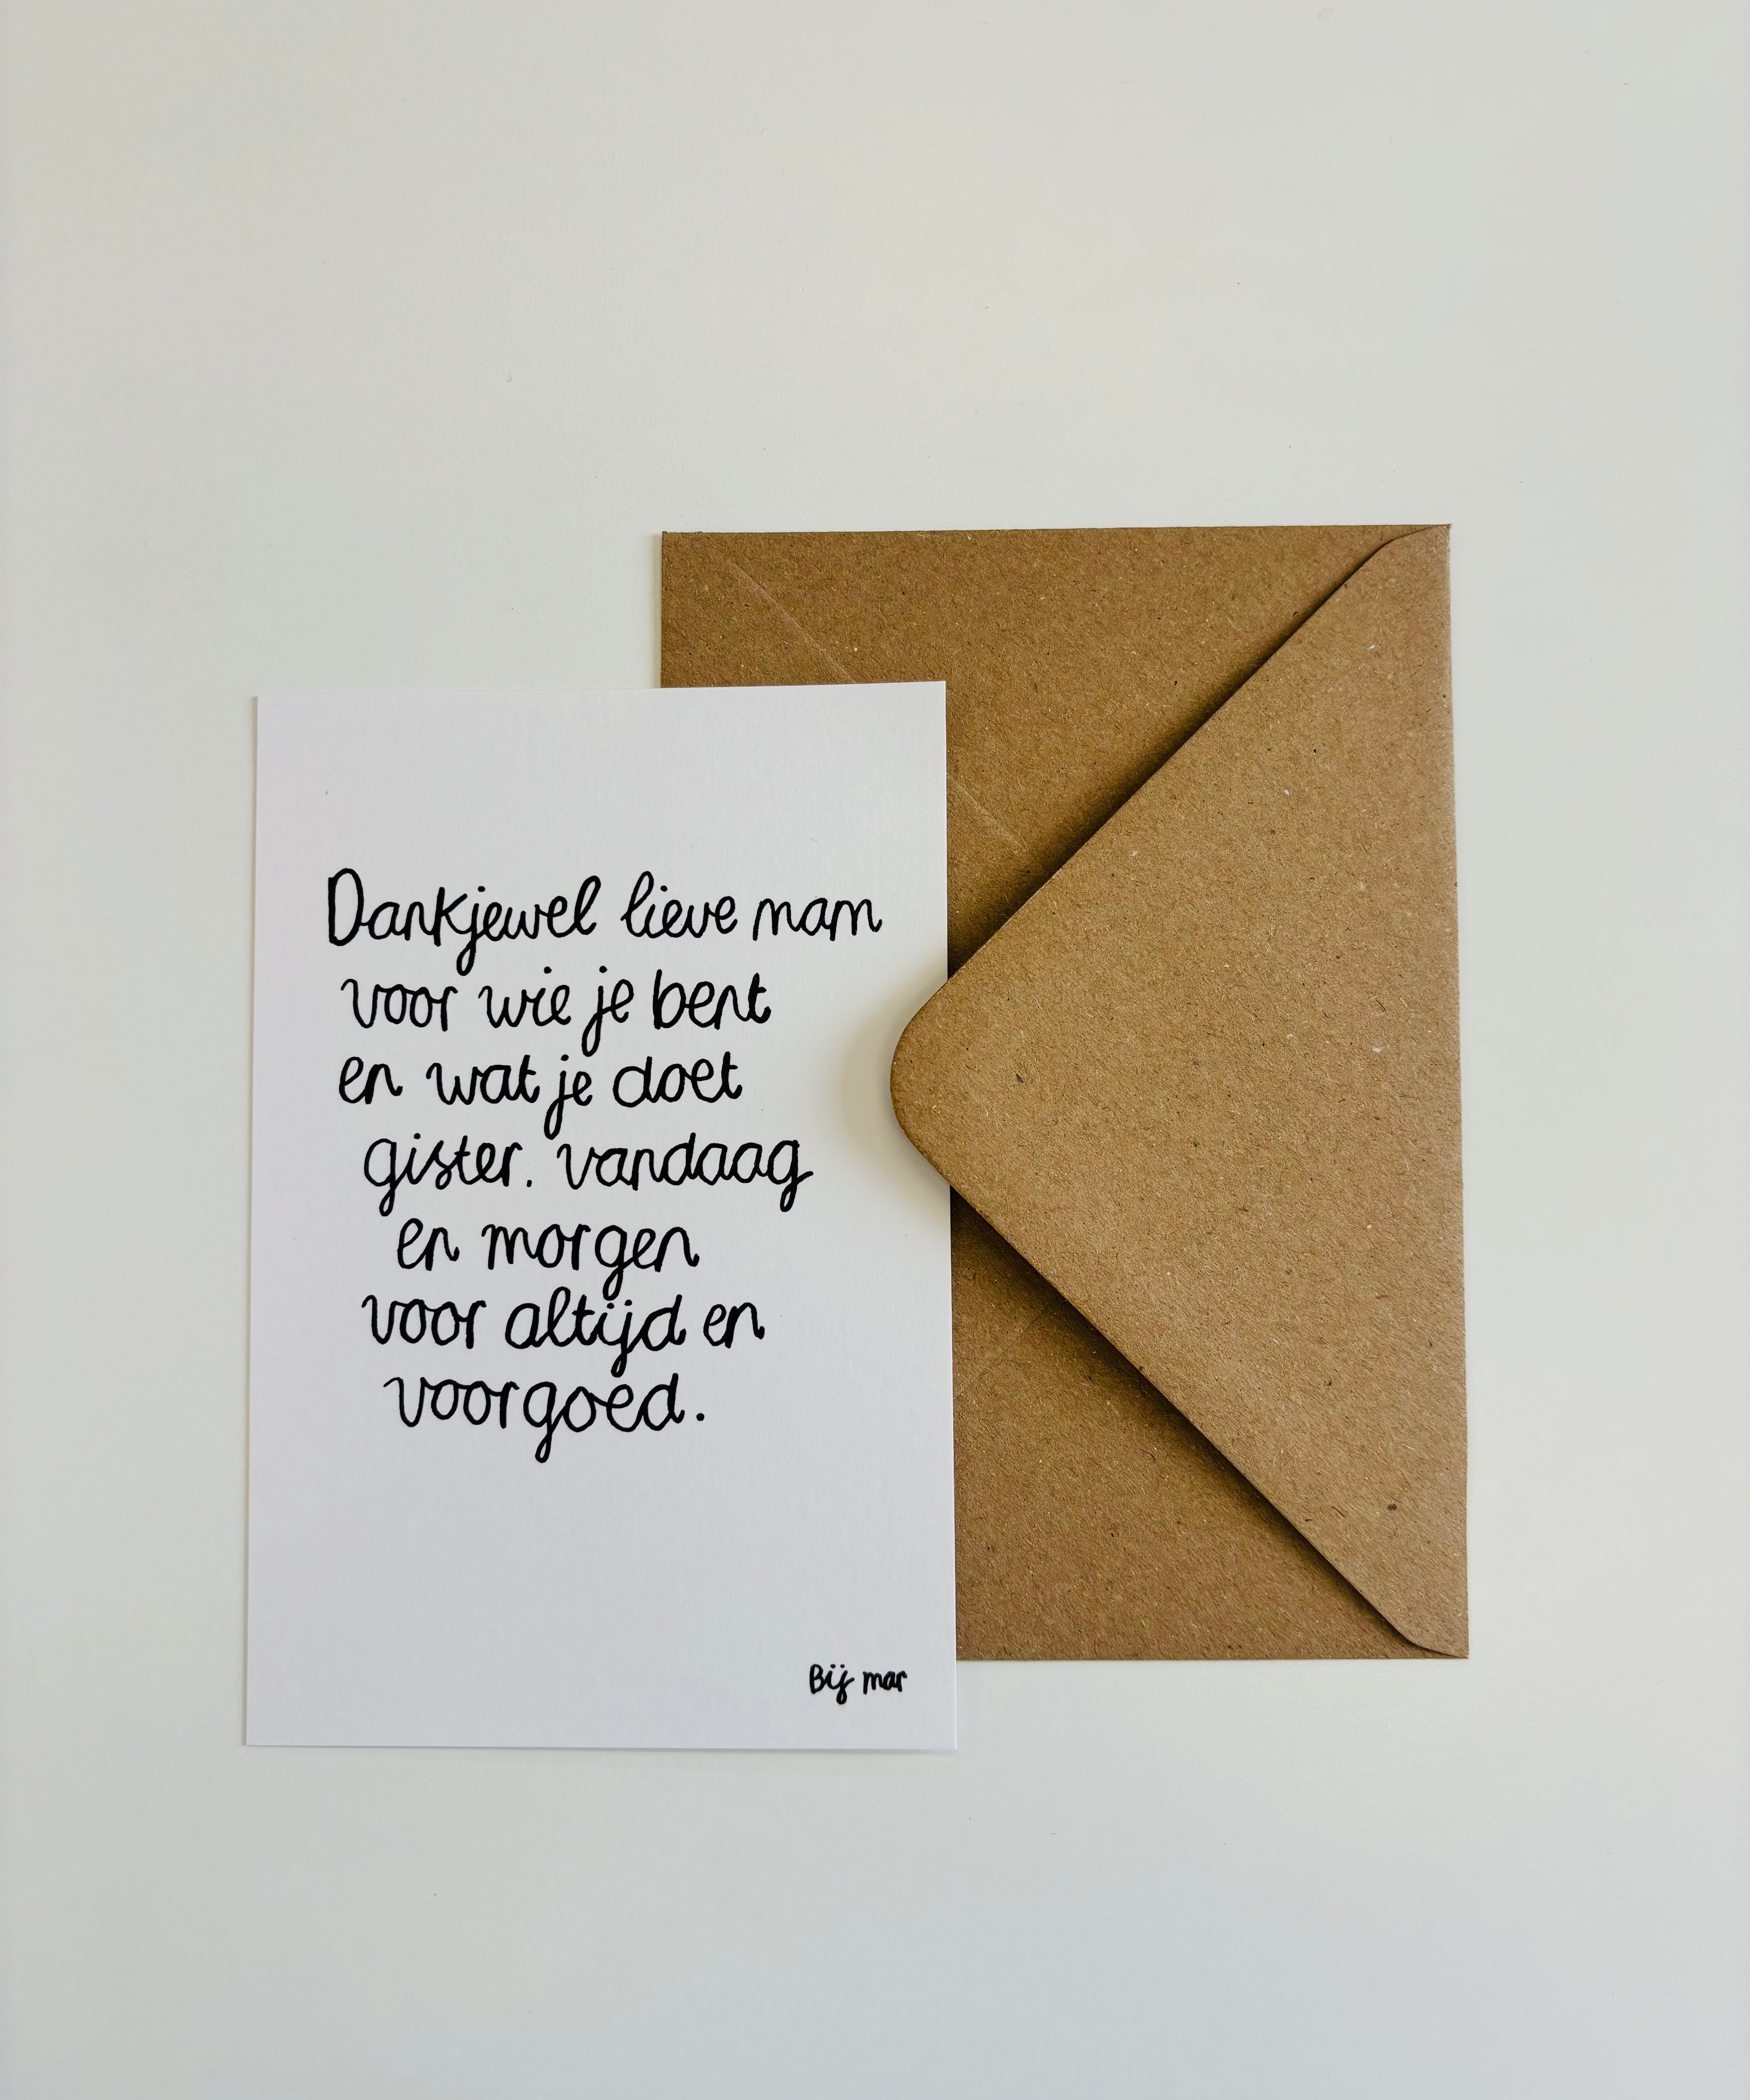 Dankjewel lieve mam
voor wie je bent
en wat je doet
gister. vandaag
en morgen
voor altijd en
voorgoed.
Bij mar